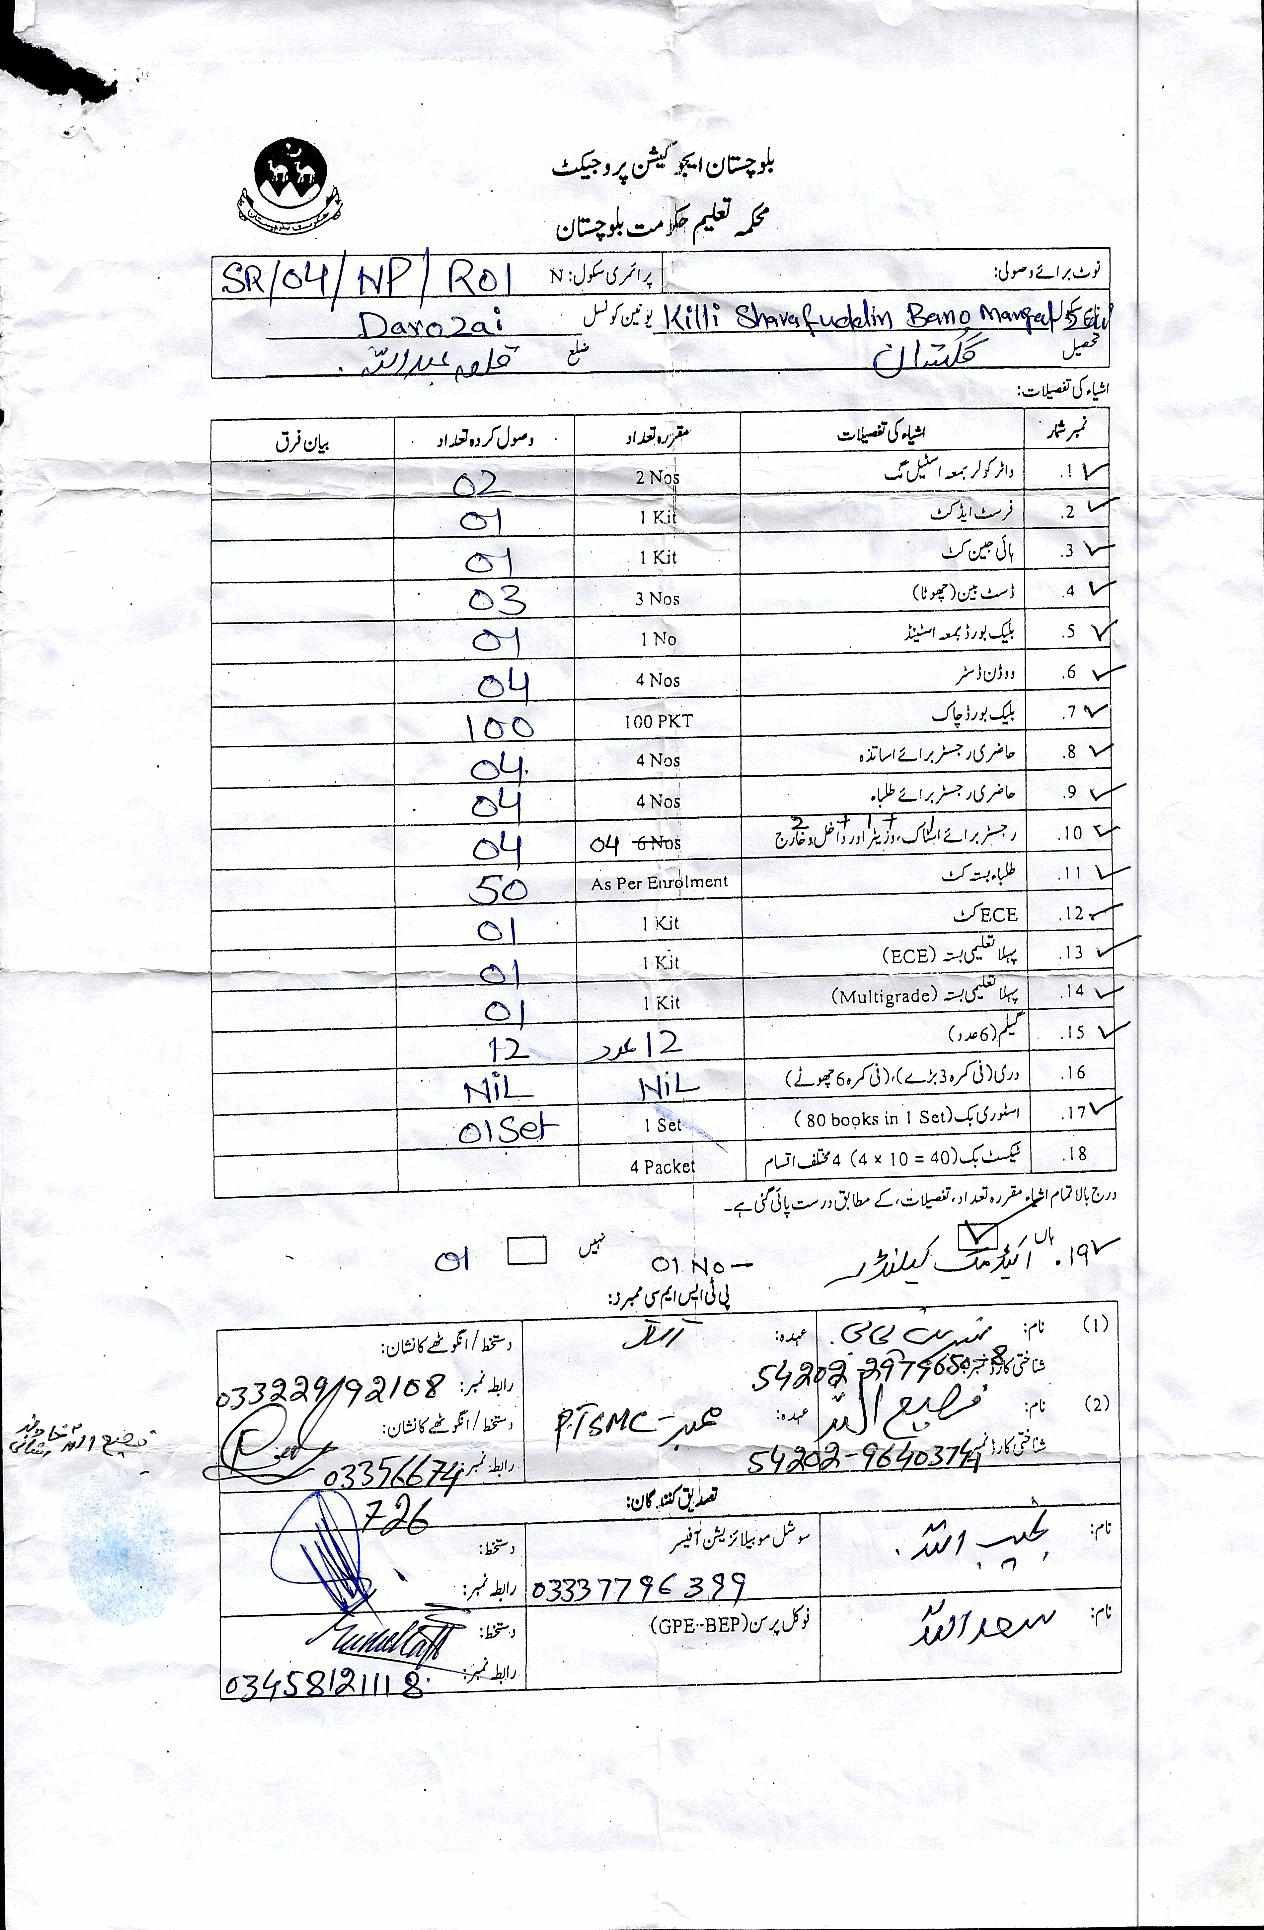 بلوچستان ایجوکیشن پروجیکٹ
محکمہ تعلیم حکومت بلوچستان
نوٹ برائے وصولی: پرائمری سکول: N SR/04/NP/R01
Killi Sharafuddin Bano Mangal یونین کونسل Darozai
تحصیل گلستان ضلع قلعہ عبداللہ
اشیاء کی تفصیلات:
نمبر شمار اشیاء کی تفصیلات مقررہ تعداد وصول کردہ تعداد بیان فرق
1. واٹر کولر بمعہ اسٹیل مگ 2 Nos 02
2. فرسٹ ایڈ کٹ 1 Kit 01
3. ہائی جین کٹ 1 Kit 01
4. ڈسٹ بین (چھوٹا) 3 Nos 03
5. بلیک بورڈ بمعہ اسٹینڈ 1 No 01
6. ووڈن ڈسٹر 4 Nos 04
7. بلیک بورڈ چاک 100 PKT 100
8. حاضری رجسٹر برائے اساتذہ 4 Nos 04
9. حاضری رجسٹر برائے طلباء 4 Nos 04
10. رجسٹر برائے اسٹاک، وزیٹر اور داخل و خارج 2 + 1 + 1 6 Nos 04 04
11. طلباء بستہ کٹ As Per Enrolment 50
12. ECE کٹ 1 Kit 01
13. پہلا تعلیمی بستہ (ECE) 1 Kit 01
14. پہلا تعلیمی بستہ (Multigrade) 1 Kit 01
15. گیلم (6 عدد) 12 عدد 12
16. دری (فی کمرہ 3 بڑے)، (فی کمرہ 6 چھوٹے) NiL NiL
17. اسٹوری بک (80 books in 1 Set) 1 Set 01 Set
18. ٹیکسٹ بک (4 x 10 = 40) 4 مختلف اقسام 4 Packet
درج بالا تمام اشیاء مقررہ تعداد، تفصیلات، کے مطابق درست پائی گئی ہے۔
ہاں نہیں
19. اکیڈمک کیلنڈر 01 No 01
پی ٹی ایس ایم سی ممبرز:
(1) نام: بی بی عہدہ: دستخط / انگوٹھے کا نشان:
شناختی کارڈ نمبر: 54202-2979650-8 رابطہ نمبر: 03322992108
(2) نام: فصیح اللہ عہدہ: ممبر PTSMC دستخط / انگوٹھے کا نشان:
شناختی کارڈ نمبر: 54202-9640374 رابطہ نمبر: 03356674726
فصیح اللہ
تصدیق کنندگان:
نام: نجیب اللہ سوشل موبیلائزیشن آفیسر دستخط:
رابطہ نمبر: 03337796399
نام: سعداللہ فوکل پرسن (GPE-BEP) دستخط:
رابطہ نمبر: 03458121118